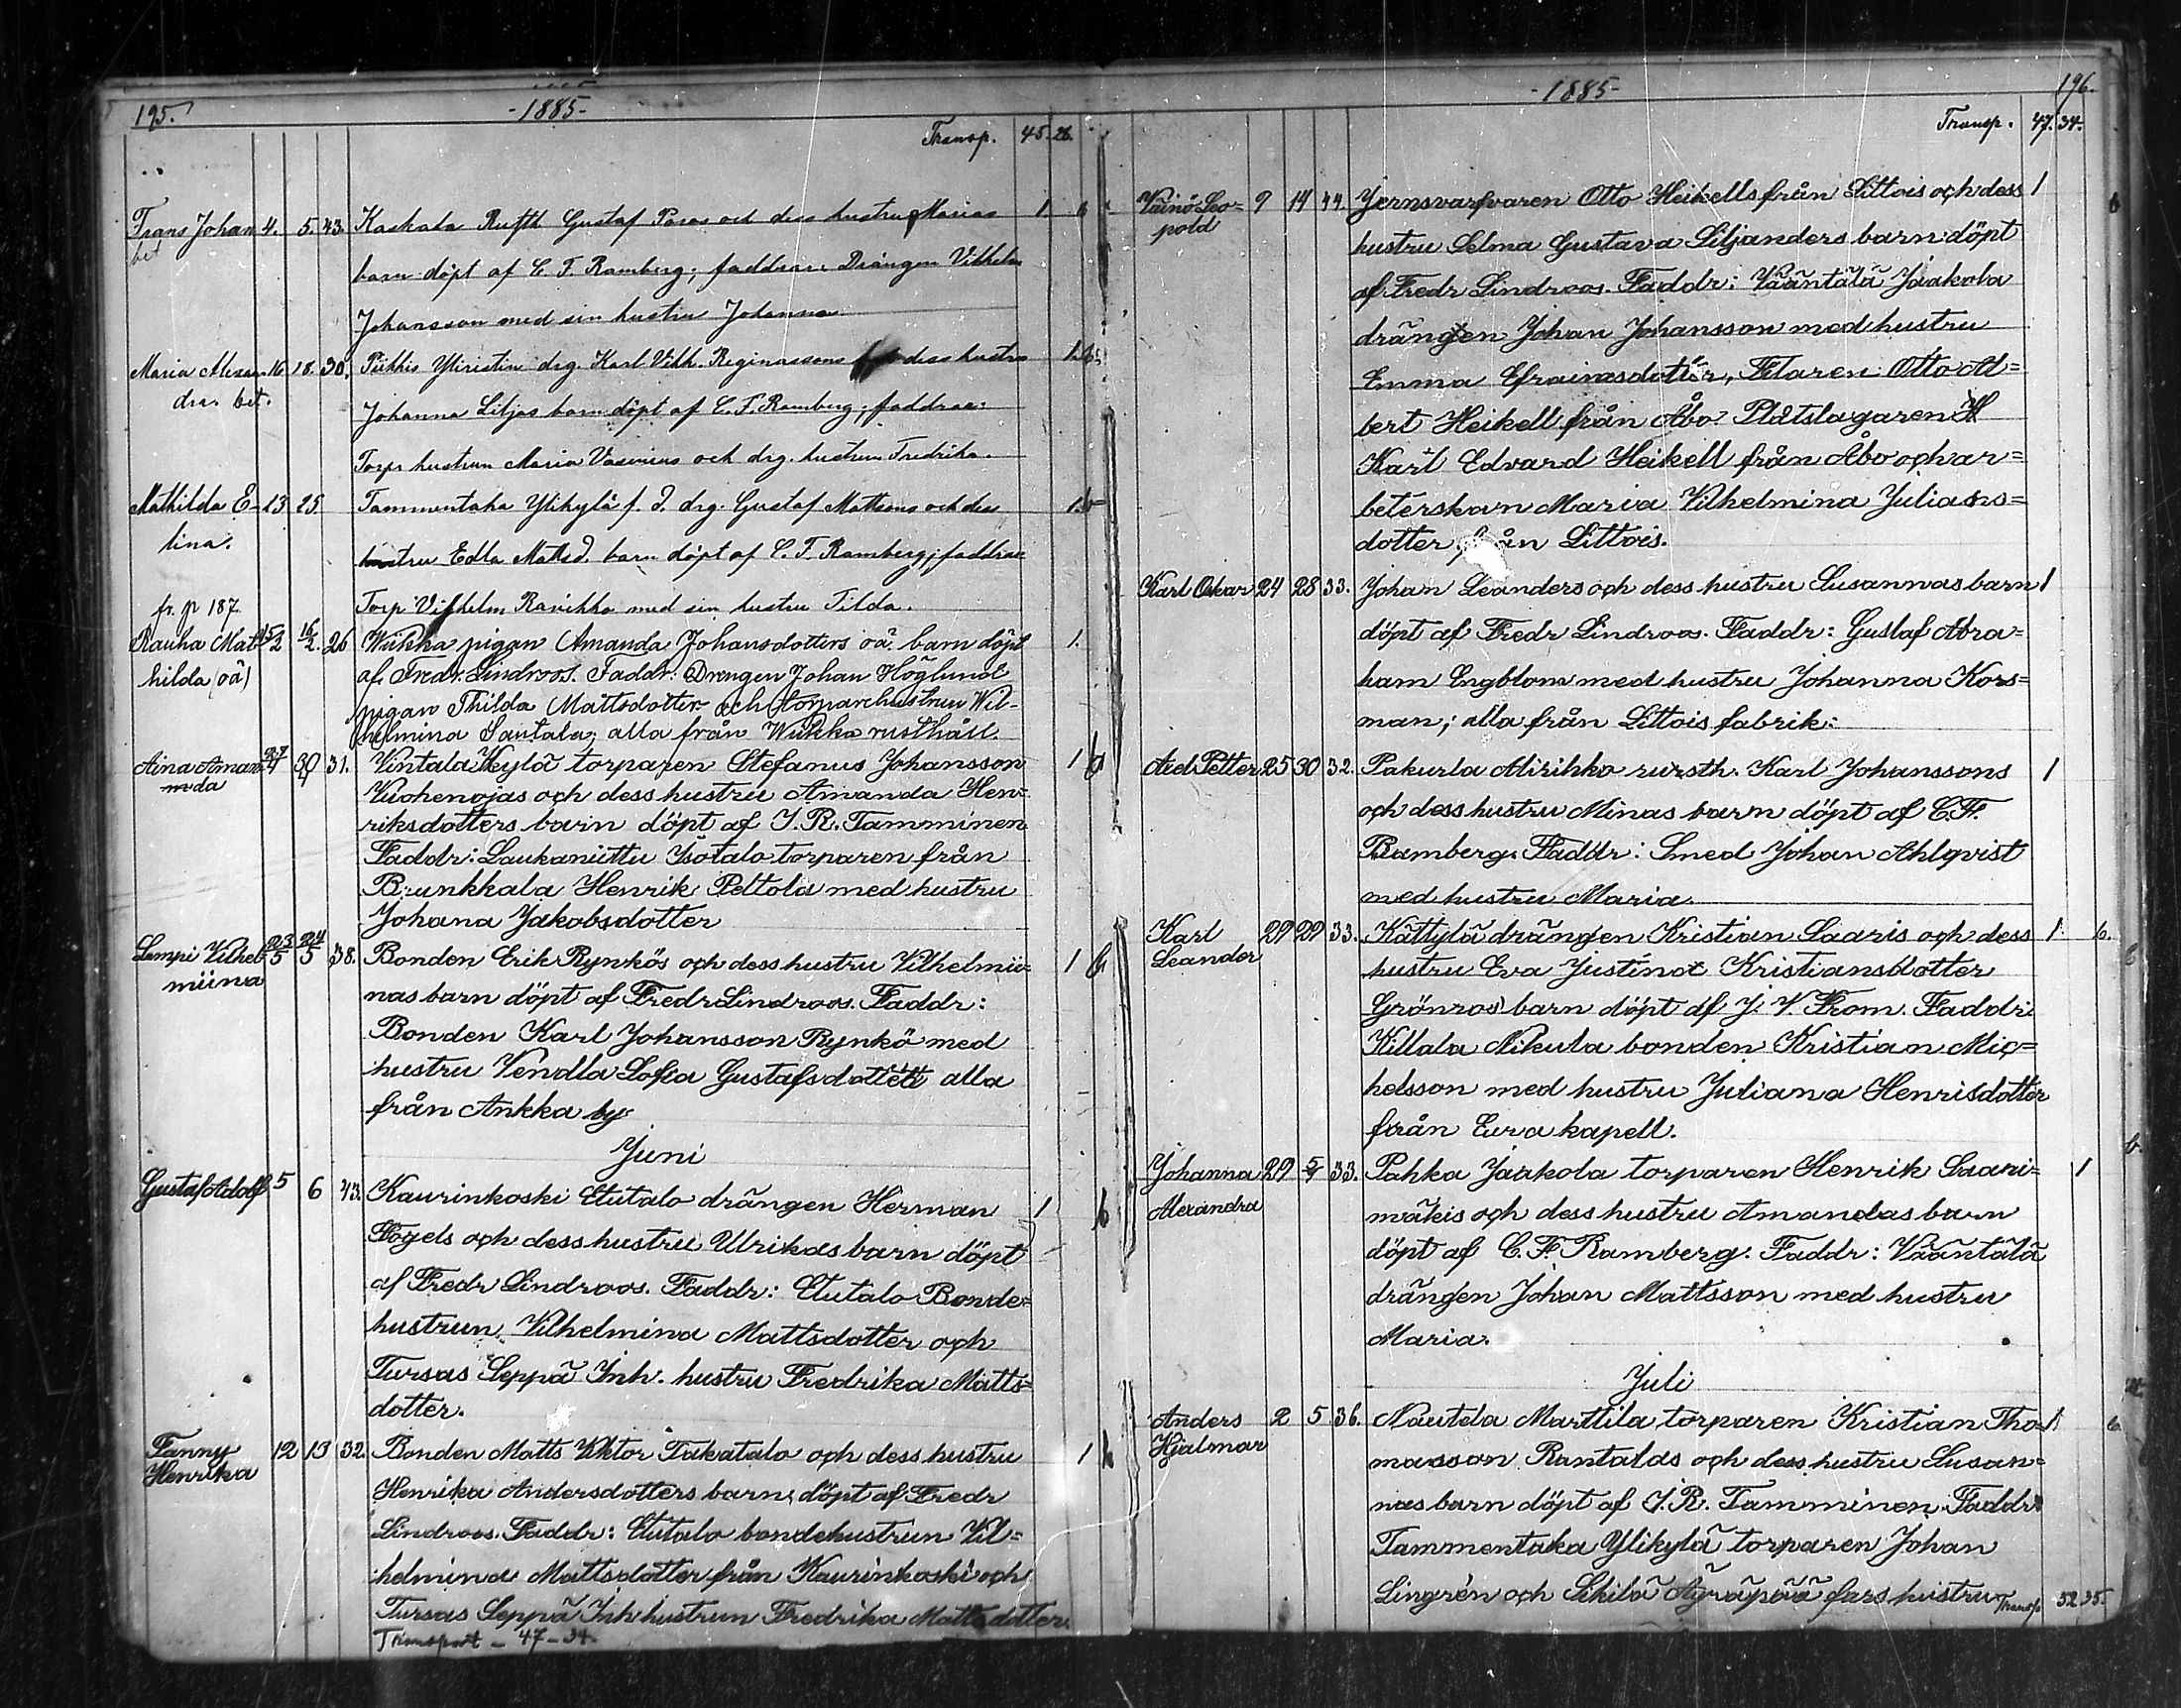 195.
-1885-
Transp. 45. 28.
Frans Johan 4. 5. 43. Kaskala Rusth Gustaf Paros och dess hustru Marias 1
bet barn döpt af C. F. Ramberg; faddrar: Drängen Vilhelm
Johansson med sin hustru Johanna.
Maria Alexan- 16 18. 30. Piikkis Yliristin drg. Karl Vilh. Reginassons dess hustru 1.
dra. bet. Johanna Liljas barn döpt af C. F. Ramberg; faddrar:
Torp. hustrun Maria Vasenius och drg. hustrun Fredrika.
Mathilda E- 13 25 Tammentaka Ylikylä f. d. drg. Gustaf Matssons och dess 1.
lina. hustru Edla Matsd. barn döpt af C. F. Ramberg; faddrar
fr. p 187. Torp. Vilhelm Ravikka med sin hustru Tilda.
Rauha Mat- 15/2 16/2. 26 Wiikka pigan Amanda Johansdotters oä. barn döpt 1.
hilda (oä) af Fredr. Lindroos. Faddr: Drengen Johan Höglund
pigan Thilda Mattsdotter och torparehustrun Wil-
helmina Santala; alla från Wiikka rusthåll.
Aina Aman- 27/4 30 31. Vintala Kylä torparen Stefanus Johansson 1
da Vuohenojas och dess hustru Amanda Hen-
riksdotters barn döpt af J. R. Tamminen
Faddr: Laukaniittu Isotalo torparen från
Brunkkala Henrik Peltola med hustru
Johana Jakobsdotter
Lempi Vilhel- 23/5 24/5 38. Bonden Erik Rynkös och dess hustru Vilhelmii- 1
miina nas barn döpt af Fredr Lindroos. Faddr:
Bonden Karl Johansson Rynkö med
hustru Vendla Sofia Gustafsdotter alla
från Ankka by
Juni
Gustaf Adolf 5 6 43. Kaurinkoski Etutalo drängen Herman 1
Fogels och dess hustru Ulrikas barn döpt
af Fredr Lindroos. Faddr: Etutalo Bonde-
hustrun Vilhelmina Mattsdotter och
Tursas Seppä Inh. hustru Fredrika Matts-
dotter.
Fanny 12 13 32. Bonden Matts Viktor Takatalo och dess hustru 1
Henrika Henrika Andersdotters barn döpt af Fredr
Lindroos. Faddr: Etutalo bondehustrun Vil-
helmina Mattsdotter från Kaurinkoski och
Tursas Seppä Inh hustrun Fredrika Mattsdotter.
Transport - 47 - 34.
-1885-
196.
Transp. 47. 34.
Väinö Leo- 9 14 44. Jernsvarfvaren Otto Heikells från Littois och dess 1
pold hustru Selma Gustava Liljanders barn döpt
af Fredr Lindroos. Faddr: Vääntälä Jaakola
drängen Johan Johansson med hustru
Emma Efraimsdotter, Filaren Otto Al-
bert Heikell från Åbo. Plåtslagaren
Karl Edvard Heikell från Åbo och ar-
beterskan Maria Vilhelmina Julians-
dotter från Littois.
Karl Oskar 24 28 33. Johan Leanders och dess hustru Susannas barn 1
döpt af Fredr Lindroos. Faddr: Gustaf Abra-
ham Engblom med hustru Johanna Kors-
man; alla från Littois fabrik.
Axel Petter 25 30 32. Pakurla Alirihko rursth. Karl Johanssons 1
och dess hustru Minas barn döpt af C. F.
Ramberg. Faddr: Smed Johan Ahlqvist
med hustru Maria.
Karl 29 29 33. Kättylä drängen Kristian Saaris och dess 1. 6.
Leander hustru Eva Justina Kristiansdotter
Grönros barn döpt af J. V. From. Faddr:
Killala Nikula bonden Kristian Mic-
helsson med hustru Juliana Henrisdotter
från Eura kapell.
Johanna 29 5/7 33. Pahka Jaakola torparen Henrik Saari- 1
Alexandra mäkis och dess hustru Amandas barn
döpt af C. F. Ramberg. Faddr: Vääntälä
drängen Johan Mattsson med hustru
Maria.
Juli
Anders 2 5 36. Nautela Marttila torparen Kristian Tho- 1 6.
Hjalmar masson Rantalas och dess hustru Susan-
nas barn döpt af J. R. Tamminen. Faddr
Tammentaka Ylikylä torparen Johan
Lingrén och Sikilä Äyräpää fars hustru
Transp 52. 35.